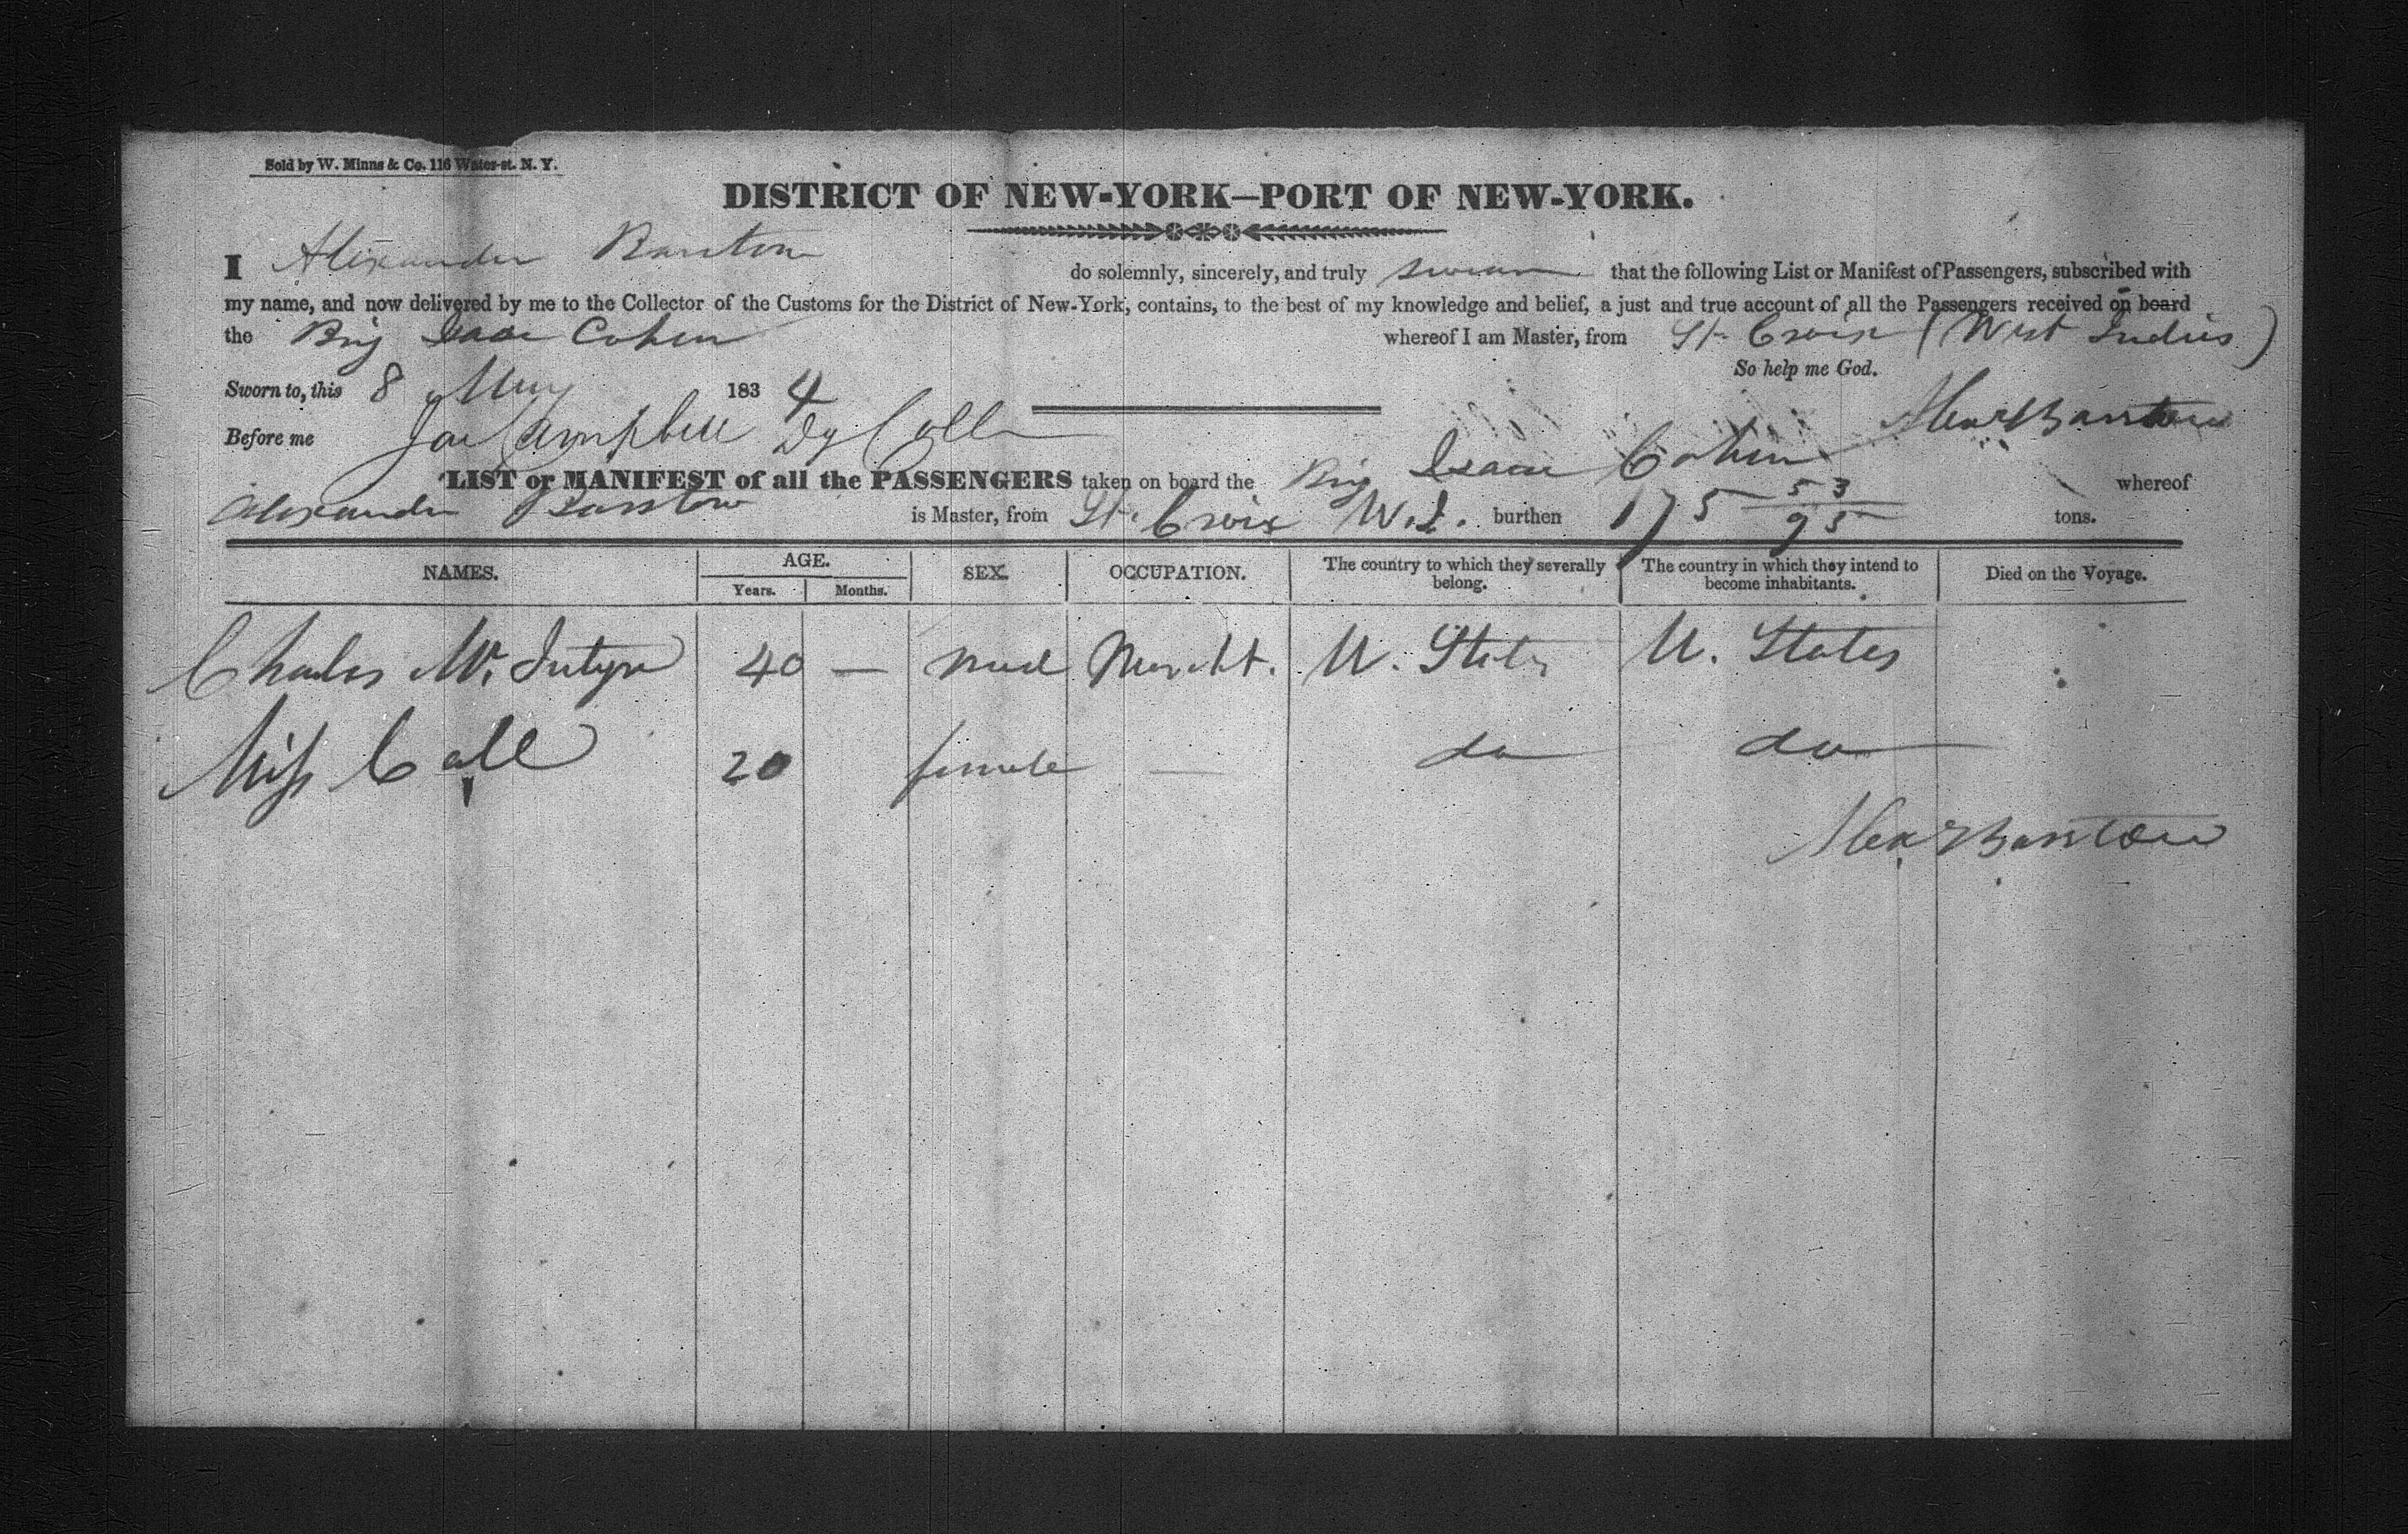 Sold by W. Minns & Co. 116 Water-st. N. Y.
DISTRICT OF NEW-YORK—PORT OF NEW-YORK.
I Alexander Barstow do solemnly, sincerely, and truly swear that the following List or Manifest of Passengers, subscribed with
my name, and now delivered by me to the Collector of the Customs for the District of New-York, contains, to the best of my knowledge and belief, a just and true account of all the Passengers received on board
the Brig Isaac Cohen whereof I am Master, from St. Croix (West Indies)
So help me God.
Sworn to, this 8 May 1834
Alex Barstow
Before me Jas Campbell Dy Coll
LIST or MANIFEST of all the PASSENGERS taken on board the Brig Isaac Cohen whereof
Alexander Barstow is Master, from St. Croix W.I. burthen 175 53/95 tons.
NAMES. AGE. SEX. OCCUPATION. The country to which they severally belong. The country in which they intend to become inhabitants. Died on the Voyage.
Years. Months.
Charles Mc. Intyre 40 — Male Mercht. U. States U. States
Miss Call 20 female — do do
Alex Barstow